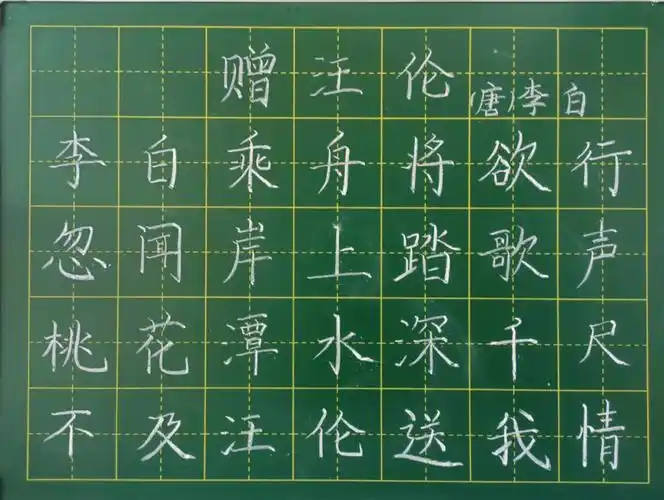 赠汪伦 (唐)李白
李自乘舟将欲行
忽闻岸上踏歌声
桃花潭水深千尺
不及汪伦送我情